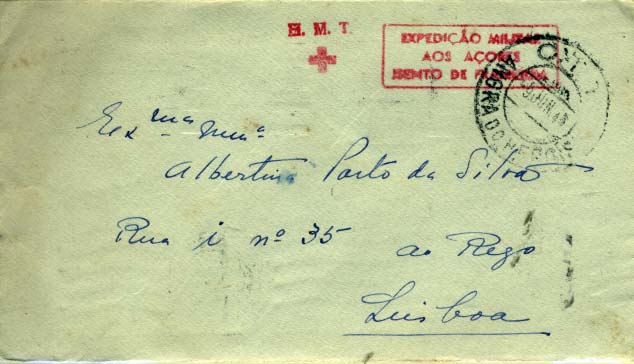 H. M. T.
EXPEDIÇÃO MILITAR
AOS AÇORES
ISENTO DE FRANQUIA
C.T.T.
ANGRA DO HEROISMO
Exma Snra
Albertina Porto da Silva
Rua i nº 35 ao Rego
Lisboa